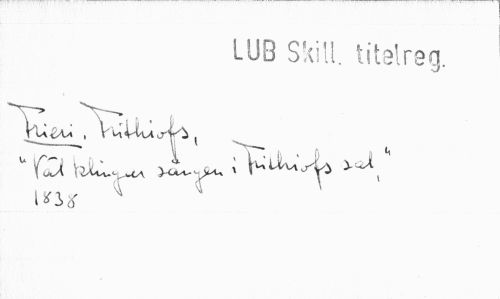 LUB Skill. titelreg.
Frieri, Frithiofs,
"Väl klingar sången i Frithiofs sal,"
1838